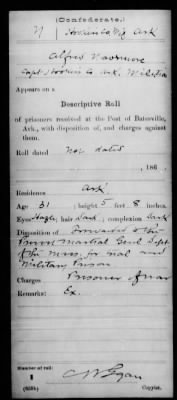 (Confederate.)
Ark
Alfred
Capt Co Ark. Militia
Appears on a
Descriptive Roll
of prisoners received at the Post of Batesville,
Ark., with disposition of, and charges against
them.
Roll dated
Not dated
, 186 .
Residence Ark
Age 31 ; height 5 feet 8 inches.
Eyes Hazle; hair Dark; complexion Dark
Disposition of Forwarded to
Marshal Genl Dept
of the Mo. for trial and
Military Prison
Charges Prisoner of war
Remarks: Ex.
Number of roll:
1
(639b)
Copyist.